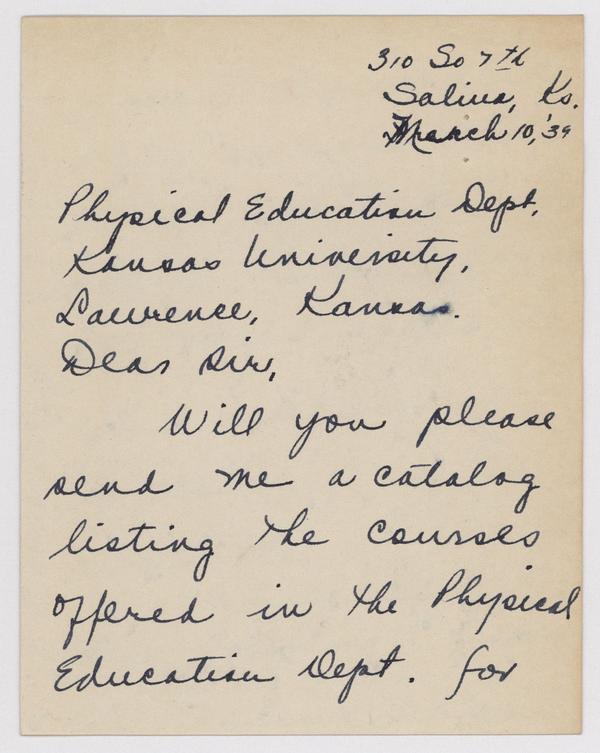 310 So 7th
Salina, Ks.
March 10, '39
Physical Education Dept.
Kansas University,
Lawrence, Kansas.
Dear Sir,
Will you please
send me a catalog
listing the courses
offered in the Physical
Education Dept. for